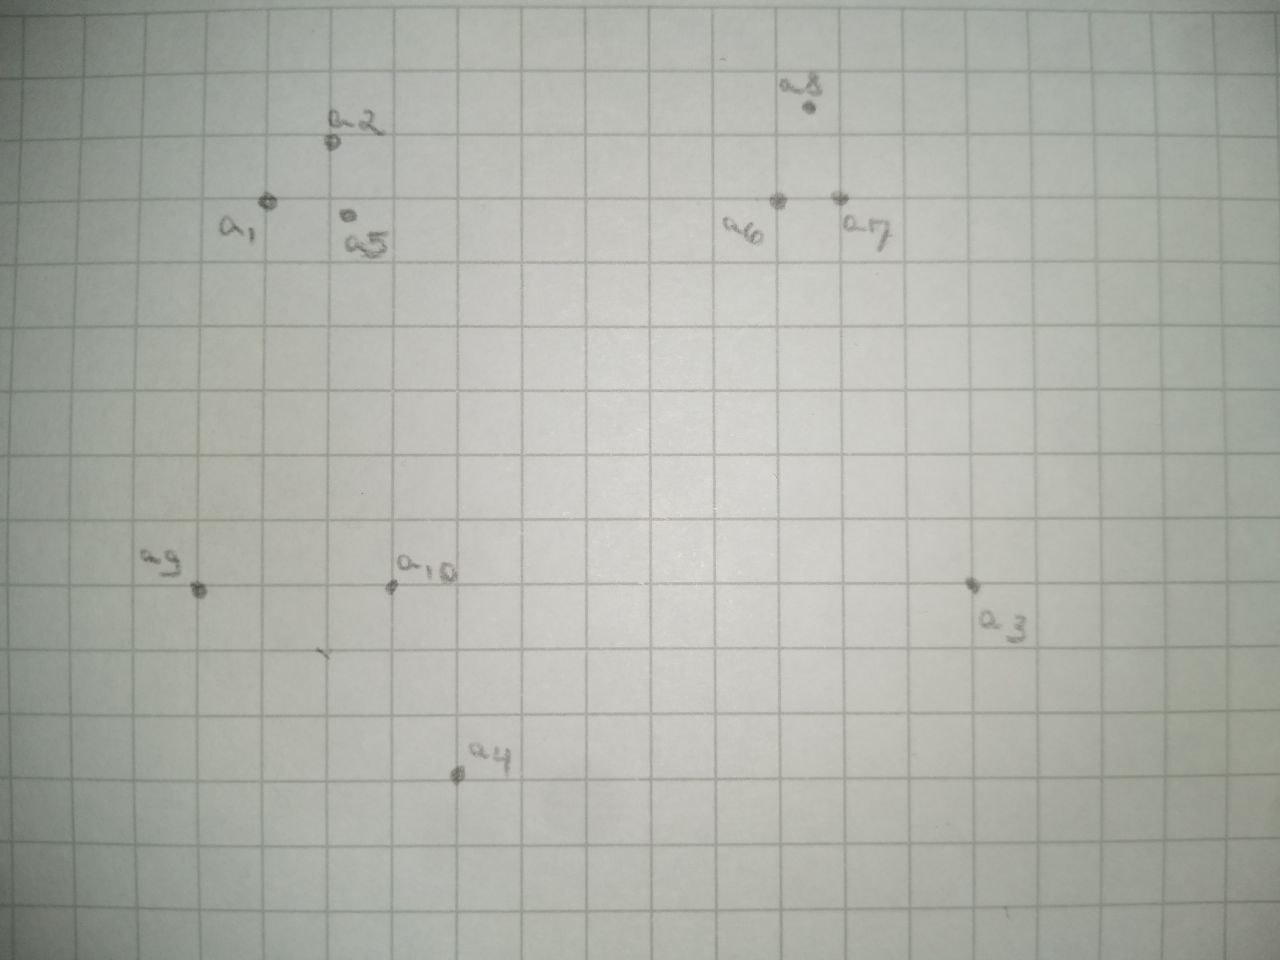 a8
a2
a1
a5
a6
a7
a9
a10
a3
a4